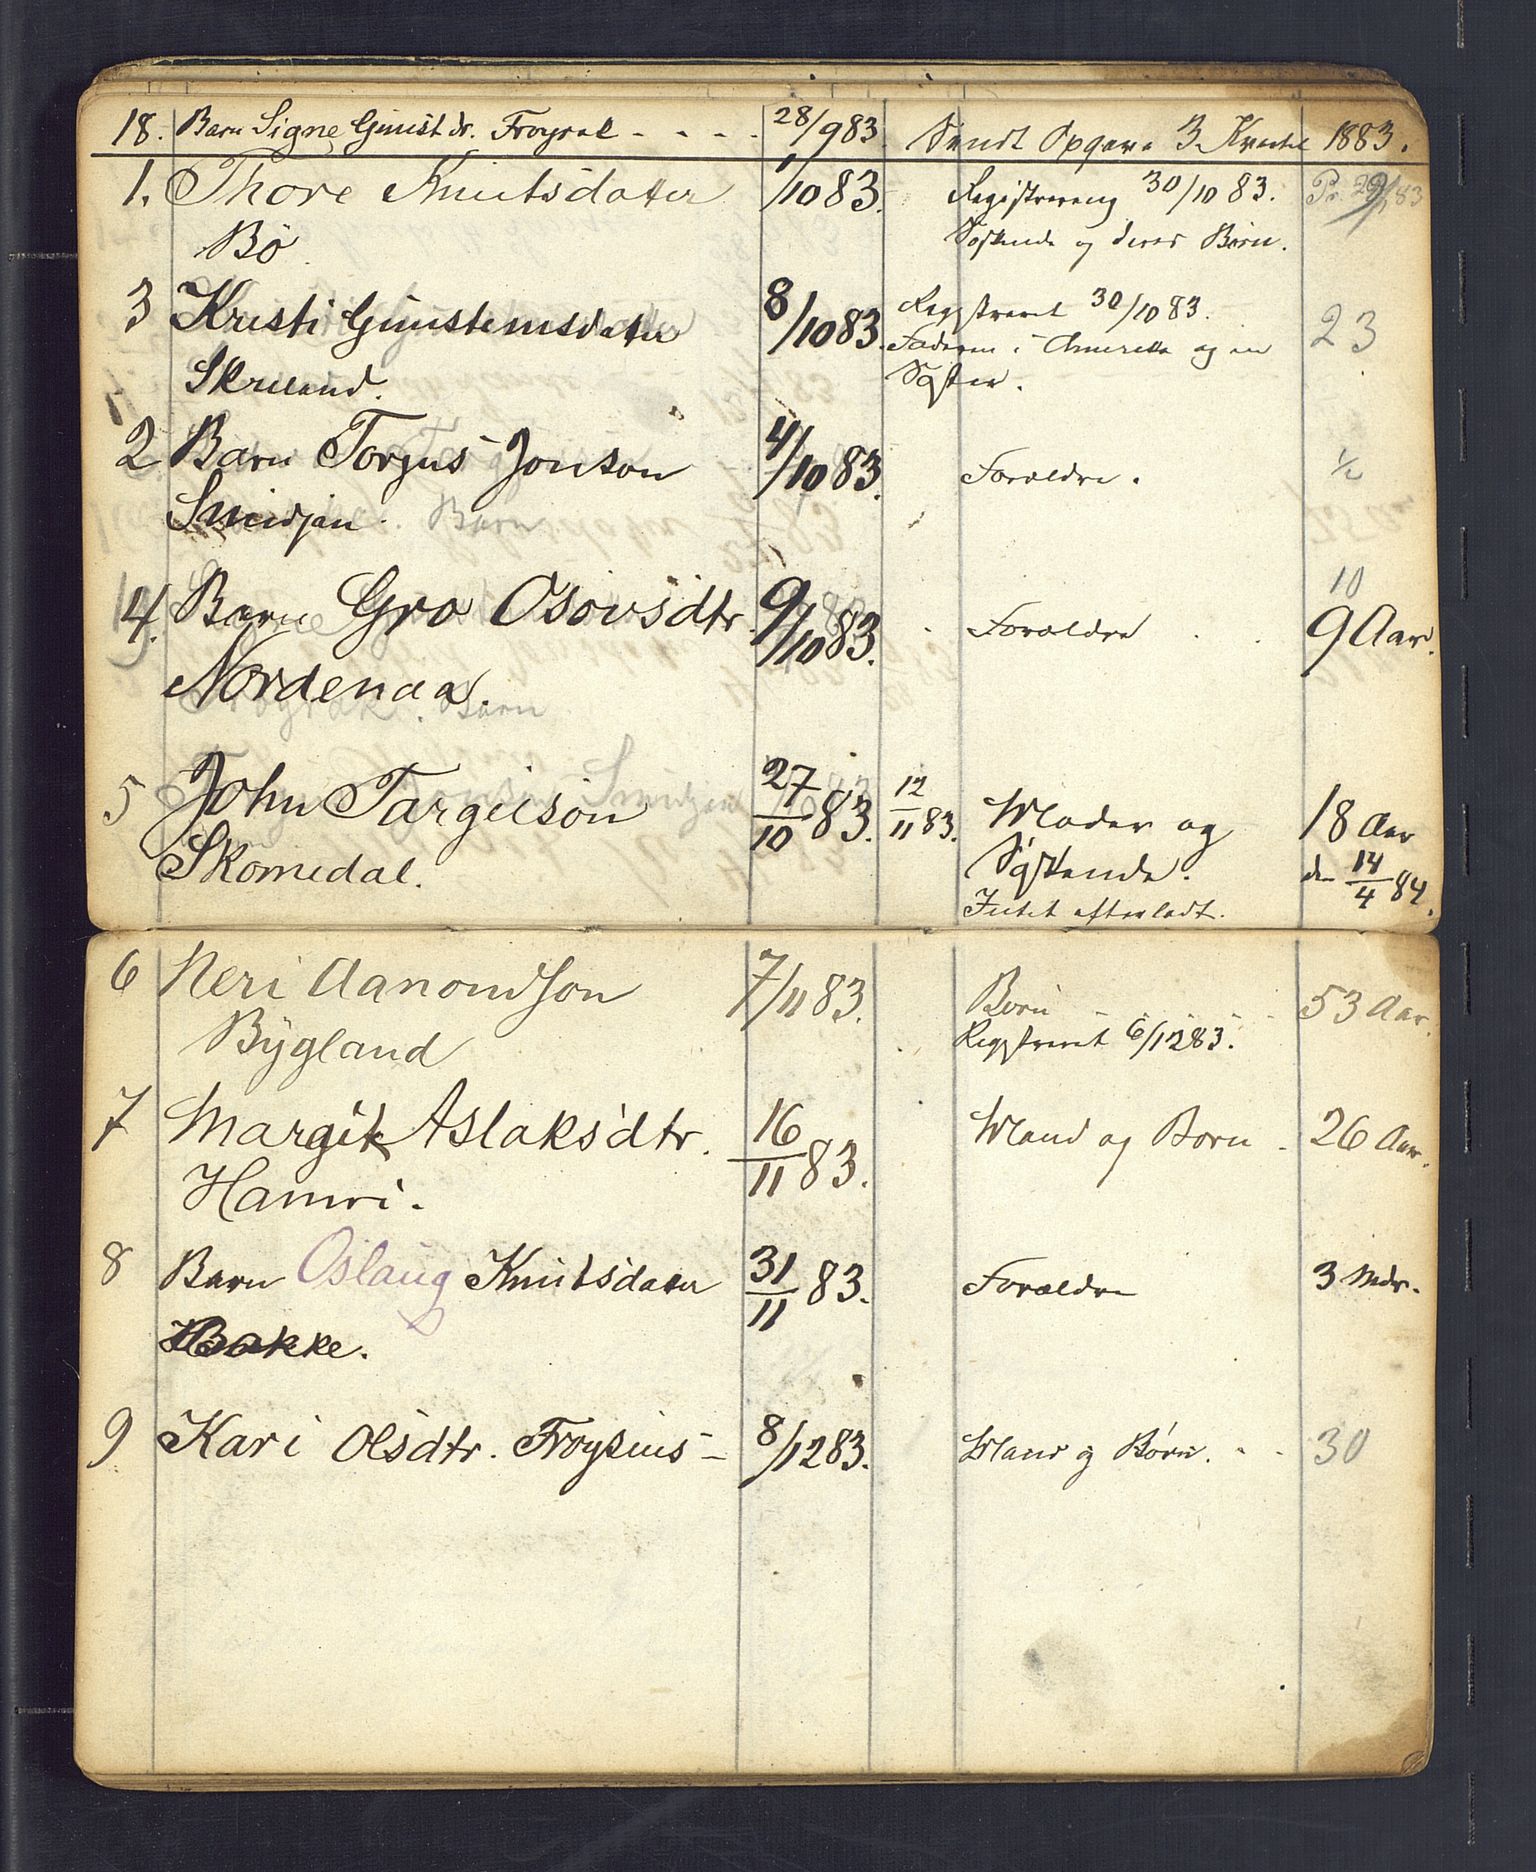 18. Barn Signe Gunstdr. Froysal - - - . 28/9 83. Sendt Opgave 3. Kvartal 1883.
1. Thore Knutsdatter 1/10 83. Registrering 30/10 83. Pr.
Bö Søskende og deres Börn.
3 Kristi Gunsteinsdatter 8/10 83. Registreret 30/10 83. 23
Faderen i Amerika og en
Skreland. Søster.
2 Barn Torjus Jonson 4/10 83. Forældre. ½
Smidjan.
10
4. Barn Gro Osovsdtr. 9/10 83. Forældre 9 Aar.
Nordenaa.
5 John Targeison 27/10 83. 12/11 83. Moder og 18 Aar
Skomedal. Søskende. den 14/4 84.
Intet efterladt.
6 Neri Aanondson 7/11 83. Born - - - 53 Aar.
Bygland Registreret 6/12 83.
7 Margit Aslaksdtr. 16/11 83. Mand og Born - 26 Aar.
Hamri.
8 Barn Oslaug Knutsdatter 31/11 83. Forældre 3 Mdr.
Bakke.
9 Kari Olsdtr. Froysnes - 8/12 83. Mand og Børn. - - 30